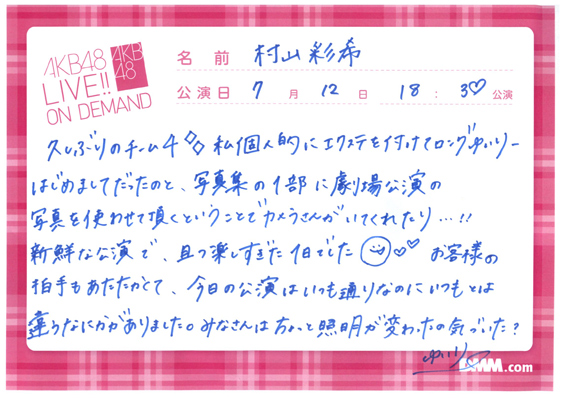 AKB48
LIVE!!
ON DEMAND
AKB
48
名前 村山彩希
公演日 7月12日 18:30公演
久しぶりのチーム4 私個人的にエクステを付けてロングゆいりー
はじめましてだったのと、写真集の1部に劇場公演の
写真を使わせて頂くということでカメラさんがいてくれたり…!!
新鮮な公演で、且つ楽しすぎた1日でした お客様の
拍手もあたたかくて、今日の公演はいつも通りなのにいつもとは
違うなにかがありました。みなさんはちょっと照明が変わったの気づいた?
ゆいり
DMM.com